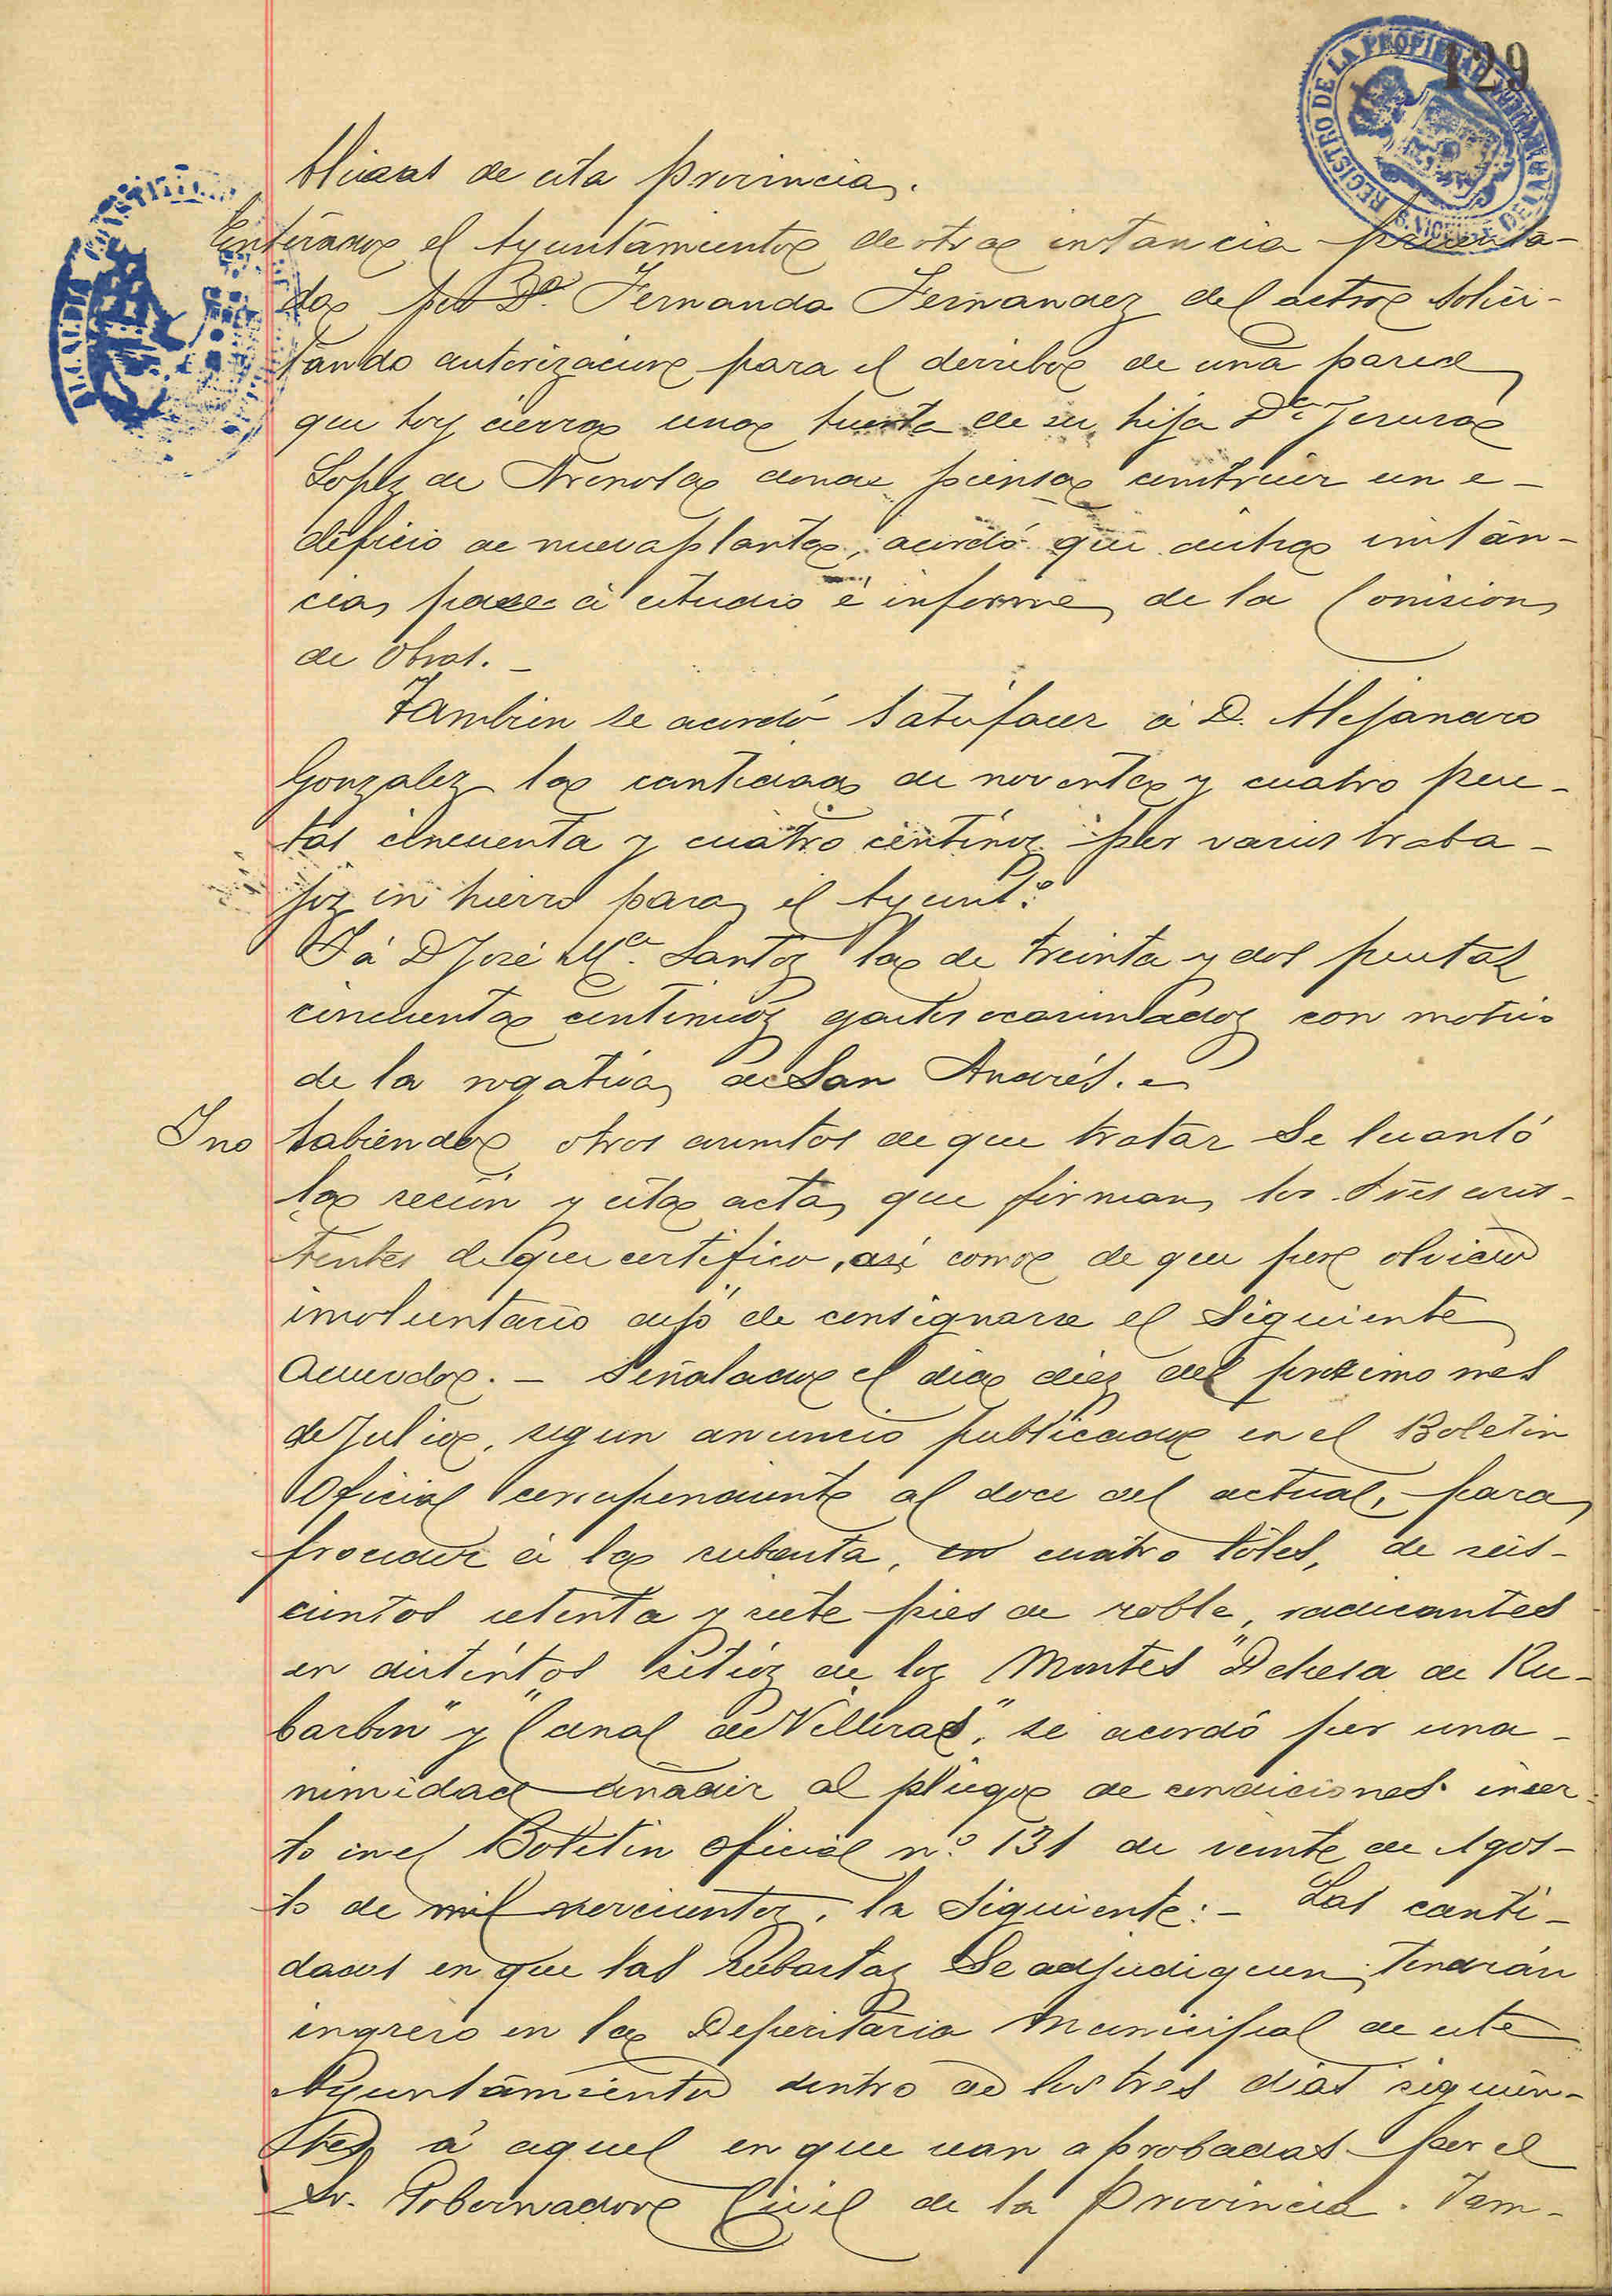 129
REGISTRO DE LA PROPIEDAD
S. VICENTE DE LA BARQUERA
blicas de esta provincia.
Enterado el Ayuntamiento de otra instancia presenta-
da por Dª Fernanda Fernandez del actro solici-
tando autorizacion para el derribo de una pared
que hoy cierra una huerta de su hija Dª Teresa
Lopez de Arenosa donde piensa construir un e-
dificio de nueva planta, acordó que dicha instan-
cia pase á estudio é informe de la Comision
de Obras. _
Tambien se acordó satisfacer á D. Alejandro
Gonzalez la cantidad de noventa y cuatro pese-
tas cincuenta y cuatro centimos por varios traba-
jos en hierro para el Ayunt.º
Y á D José Mª. Santos la de treinta y dos pesetas
cincuenta centimos gastos ocasionados con motivo
de la rogativa de San Andrés. _
Y no habiendo otros asuntos de que tratar se levantó
la sesión y esta acta, que firman los Sres asis-
tentes de que certifico, así como de que por olvido
involuntario dejó de consignarse el siguiente
acuerdo. _ Señalado el dia diez del proximo mes
de Julio, segun anuncio publicado en el Boletin
Oficial correspondiente al doce del actual, para
proceder á la subasta, en cuatro lótes, de seis-
cientos setenta y siete pies de roble, radicantes
en distintos sitios de los Montes "Dehesa de Ru-
barbon" y "Canal de Villeras", se acordó por una-
nimidad añadir al pliego de condiciones inser-
to en el Boletin oficial nº. 131 de veinte de Agos-
to de mil novecientos, la siguiente: _ Las canti-
dades en que las subastas se adjudiquen, tendrán
ingreso en la Depositaria Municipal de este
Ayuntamiento dentro de los tres dias siguien-
tes, á aquel en que sean aprobadas por el
Sr. Gobernador Civil de la Provincia. Tam-